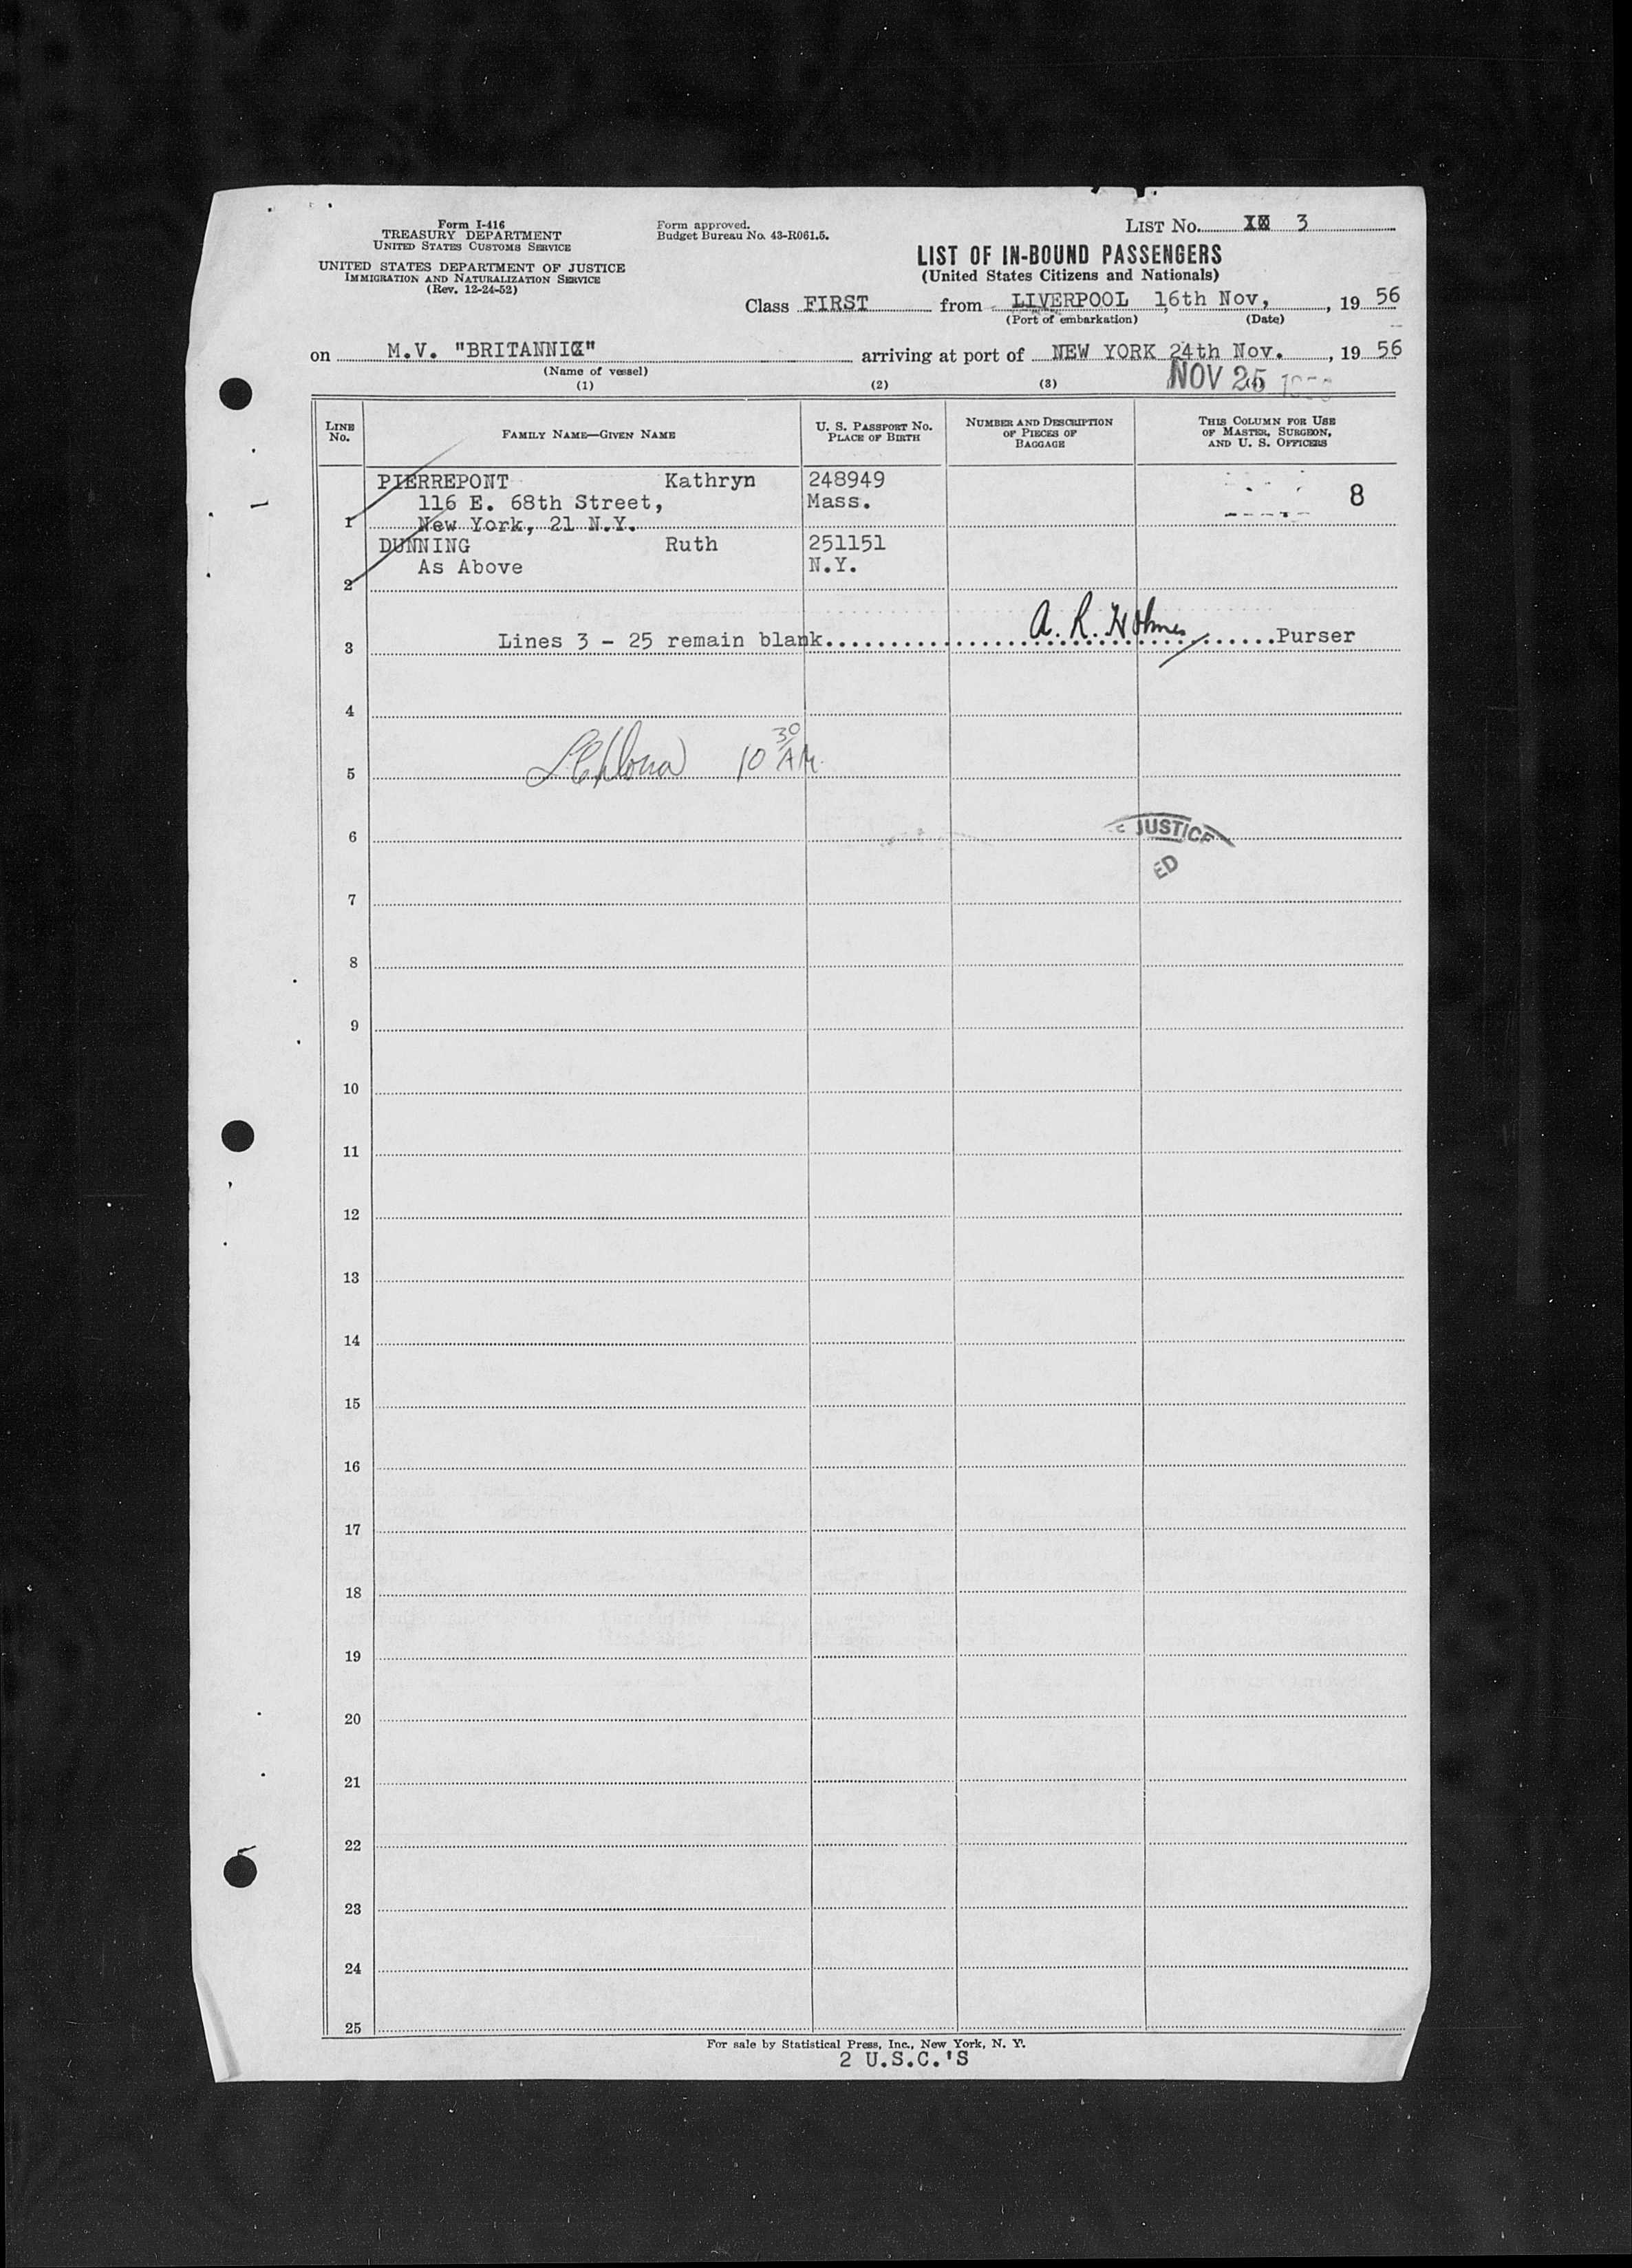 Form I-416
TREASURY DEPARTMENT
UNITED STATES CUSTOMS SERVICE
UNITED STATES DEPARTMENT OF JUSTICE
IMMIGRATION AND NATURALIZATION SERVICE
(Rev. 12-24-52)
Form approved.
Budget Bureau No. 43-R061.5.
LIST No. 3
LIST OF IN-BOUND PASSENGERS
(United States Citizens and Nationals)
Class FIRST from LIVERPOOL, 16th Nov, , 19 56
(Port of embarkation) (Date)
on M.V. "BRITANNIC" arriving at port of NEW YORK 24th Nov. , 19 56
(Name of vessel)
NOV 25
(1) (2) (3)
LINE No. FAMILY NAME—GIVEN NAME U. S. PASSPORT NO. PLACE OF BIRTH NUMBER AND DESCRIPTION OF PIECES OF BAGGAGE THIS COLUMN FOR USE OF MASTER, SURGEON, AND U. S. OFFICERS
PIERREPONT Kathryn 248949
116 E. 68th Street, Mass. 8
1 New York, 21 N.Y.
DUNNING Ruth 251151
As Above N.Y.
2
A. R. Holmes
3 Lines 3 - 25 remain blank.......................................Purser
4
5 10 30 AM
6 JUSTICE
ED
7
8
9
10
11
12
13
14
15
16
17
18
19
20
21
22
23
24
25
For sale by Statistical Press, Inc., New York, N. Y.
2 U.S.C.'S